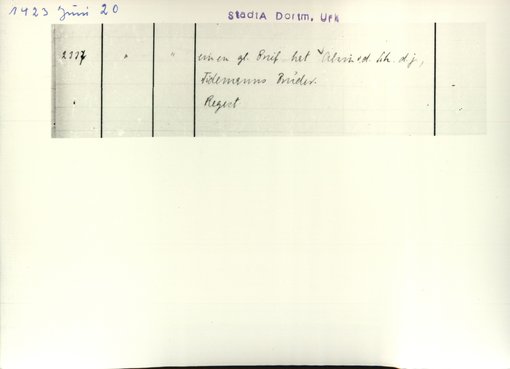 1423 Juni 20
StadtA Dortm. Urk
2337 " " einen gl. Brief het d. j.,
Tidemanns Bruder.
" Regest